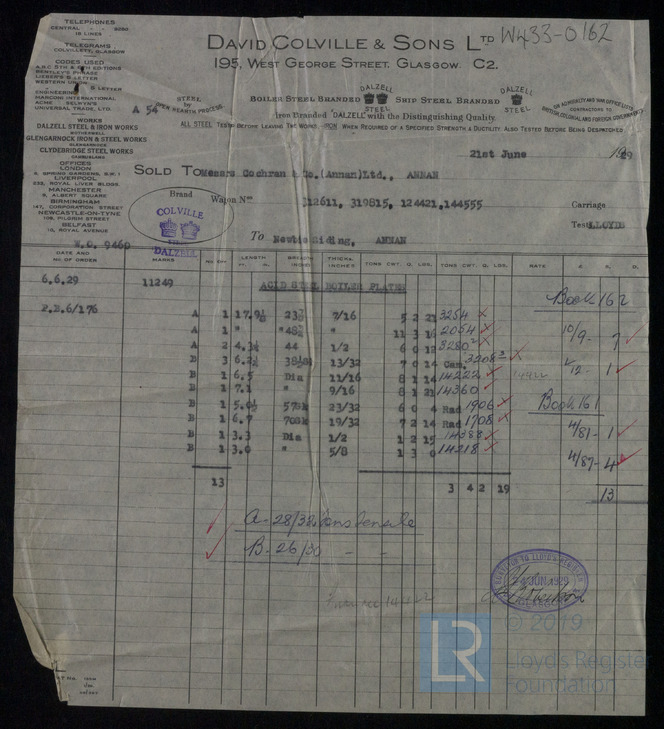 W433-0162
TELEPHONES
CENTRAL - 5250
15 LINES
TELEGRAMS
COLVILLES, GLASGOW
CODES USED
A.B.C 5TH & 6TH EDITIONS
BENTLEY'S PHRASE
LIEBER'S 5 LETTER
WESTERN UNION
5 LETTER
MARCONI INTERNATIONAL
ACME SELWYN'S
UNIVERSAL TRADE, LTD.
WORKS
DALZELL STEEL & IRON WORKS
MOTHERWELL
GLENGARNOCK IRON & STEEL WORKS
GLENGARNOCK
CLYDEBRIDGE STEEL WORKS
CAMBUSLANG
OFFICES
LONDON
LIVERPOOL
232, ROYAL LIVER BLDGS.
MANCHESTER
8, ALBERT SQUARE
BIRMINGHAM
147, CORPORATION STREET
NEWCASTLE-ON-TYNE
109, PILGRIM STREET
BELFAST
10, ROYAL AVENUE
DAVID COLVILLE & SONS LTD
195, WEST GEORGE STREET. GLASGOW C2.
A 54
STEEL by OPEN HEARTH PROCESS
BOILER STEEL BRANDED DALZELL STEEL SHIP STEEL BRANDED DALZELL STEEL
Iron Branded "DALZELL" with the Distinguishing Quality.
ON ADMIRALTY AND WAR OFFICE LISTS
CONTRACTORS TO
BRITISH, COLONIAL AND FOREIGN GOVERNMENTS
ALL STEEL TESTED BEFORE LEAVING THE WORKS. IRON WHEN REQUIRED OF A SPECIFIED STRENGTH & DUCTILITY ALSO TESTED BEFORE BEING DESPATCHED
21st June 1929
SOLD TO Messrs Cochran & Co.(Annan)Ltd., ANNAN
Brand
COLVILLE
STEEL
DALZELL
Wagon Nos
312611, 319815, 124421,144555
Carriage
Test LLOYDS
W.O. 9460
To Newbie Siding, ANNAN
DATE AND NO OF ORDER MARKS LENGTH BREADTH THICK. INCHES TONS CWT. Q. LBS. TONS CWT. Q. LBS. RATE £ S. D.
6.6.29 11249 ACID STEEL BOILER PLATES
Book 162
P.B.6/176
A 1 17.9½ 23¾ 7/16 5 2 21 3254
A 1 " 48¾ " 11 3 16 2054 10/9 - 7
A 2 4.3¼ 44 1/2 6 0 12 3280
B 3 6.2½ 13/32 7 0 14 Cam. 3208 12 - 1
B 1 6.5 Dia 11/16 8 1 14 14222 14422
B 1 7.1 " 9/16 8 1 21 14360 Book 161
B 1 5.0½ 23/32 6 0 4 Rad 1906
B 1 6.7 19/32 7 2 14 Rad 1708
B 1 3.3 Dia 1/2 1 2 15 14388 4/81 - 1
B 1 3.0 " 5/8 1 3 0 14218 4/87 - 4
13 3 4 2 19 13
A - 28/32 tons tensile
B - 26/30 - -
SURVEYOR TO LLOYD'S REGISTER
24 JUN 1929
GLASGOW
LR
© 2019
Lloyd's Register
Foundation